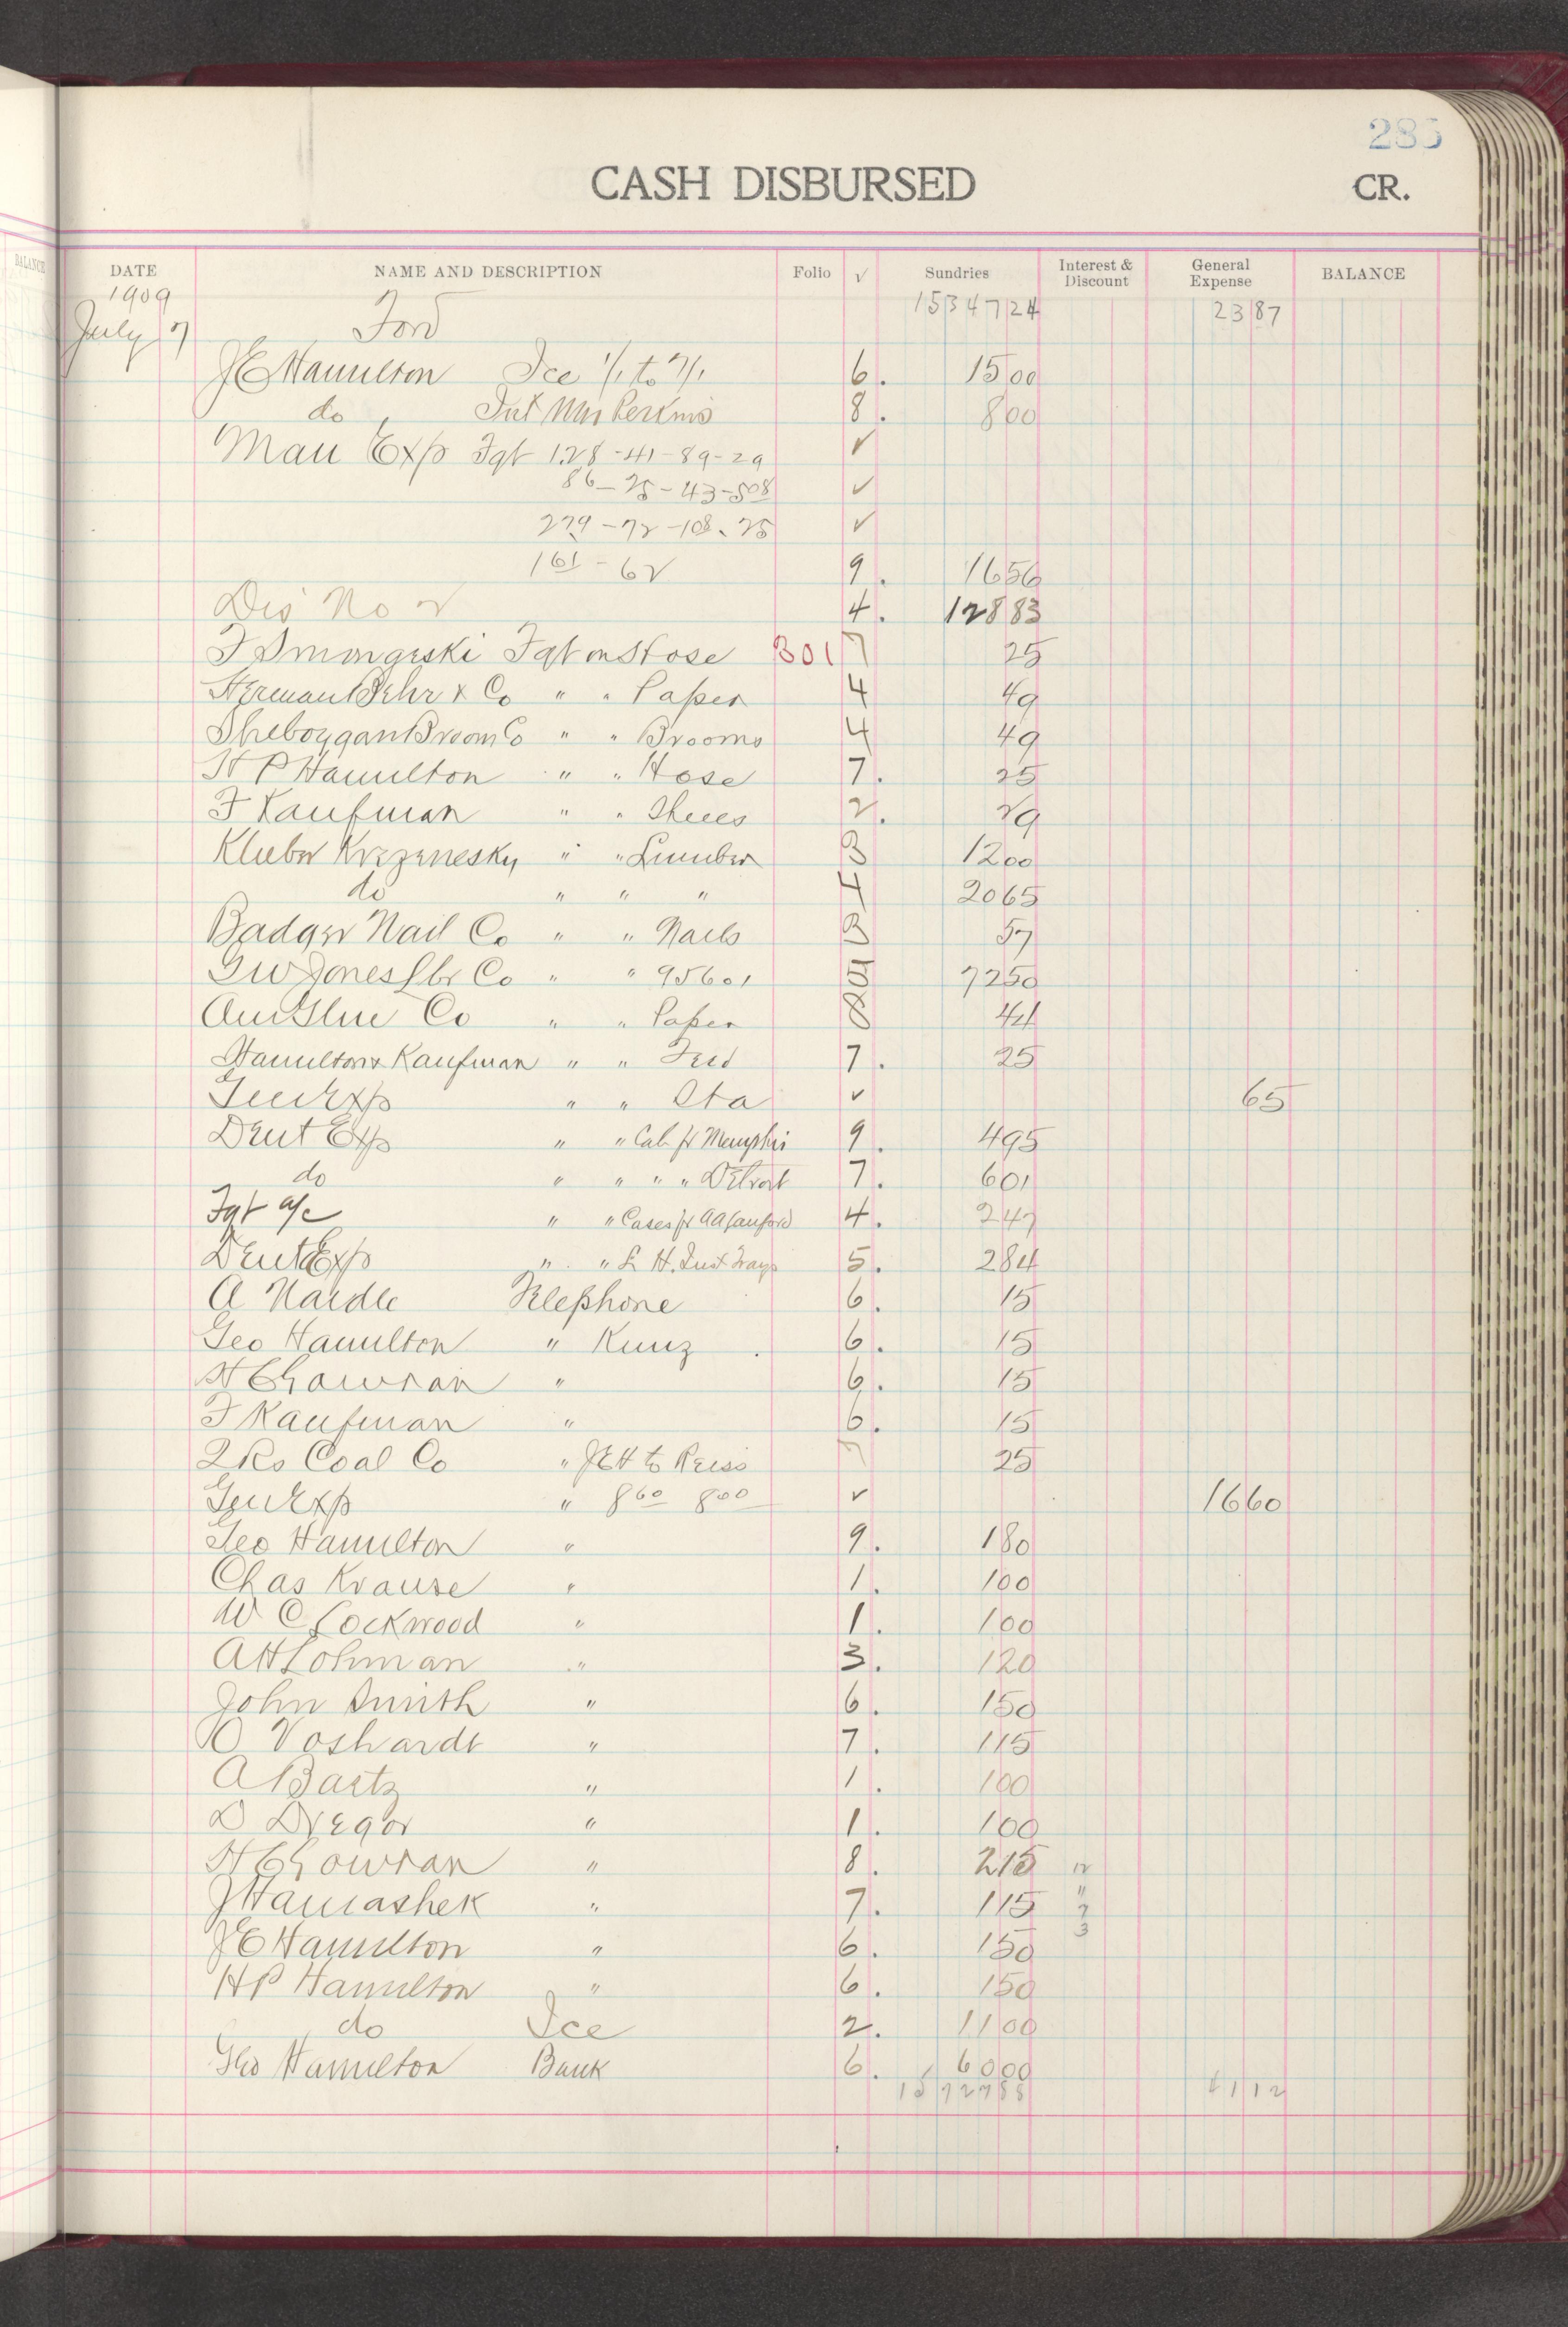 285
CASH DISBURSED CR.
BALANCE
DATE NAME AND DESCRIPTION Folio √ Sundries Interest & Discount General Expense BALANCE
1909
July 7 Ford 15347 24 23 87
JE Hamilton Ice 1/1 to 7/1 6. 15 00
do Int Mrs Perkins 8. 8 00
Man Exp Fgt 128-41-89-29 √
86-25-43-508 √
279-72-108-25 √
161-62 9. 16 56
Dis No 2 4. 128 83
F Smongeski Fgt on Hose 301 7 25
Herman Behr & Co " " Paper 4 49
Sheboygan Broom Co " " Brooms 4 49
H P Hamilton " " Hose 7. 25
F Kaufman " " 2. 29
" " Lumber 3 12 00
do " " " 4 20 65
Badger Nail Co " " Nails 3 57
G W Jones Lbr Co " " 95601 5 72 50
Am Glue Co " " Paper 8 44
Hamilton & Kaufman " " Feed 7. 25
Gen Exp " " Sta √ 65
Dent Exp " " Cab fr Memphis 9. 4 95
do " " " " Detroit 7. 6 01
Fgt a/c " " Cases fr AA Sanford 4. 2 47
Dent Exp " " L H. Inst Trays 5. 2 84
A Nardle Telephone 6. 15
Geo Hamilton " Kunz 6. 15
H C Gowran " 6. 15
F Kaufman " 6. 15
2 Rs Coal Co " JEH to Reiss 7 25
Gen Exp " 8 60 8 00 √ 16 60
Geo Hamilton " 9. 1 80
Chas Krause " 1. 1 00
W C Lockwood " 1. 1 00
A H Lohman " 3. 1 20
John Smith " 6. 1 50
O Voshardt " 7. 1 15
A Bartz " 1. 1 00
D Dregor " 1. 1 00
H C Gowran " 8. 2 15 12
J Hamashek " 7. 1 15 11
7
3
JE Hamilton " 6. 1 50
HP Hamilton " 6. 1 50
do Ice 2. 11 00
Geo Hamilton Bank 6. 60 00
15727 88 41 12